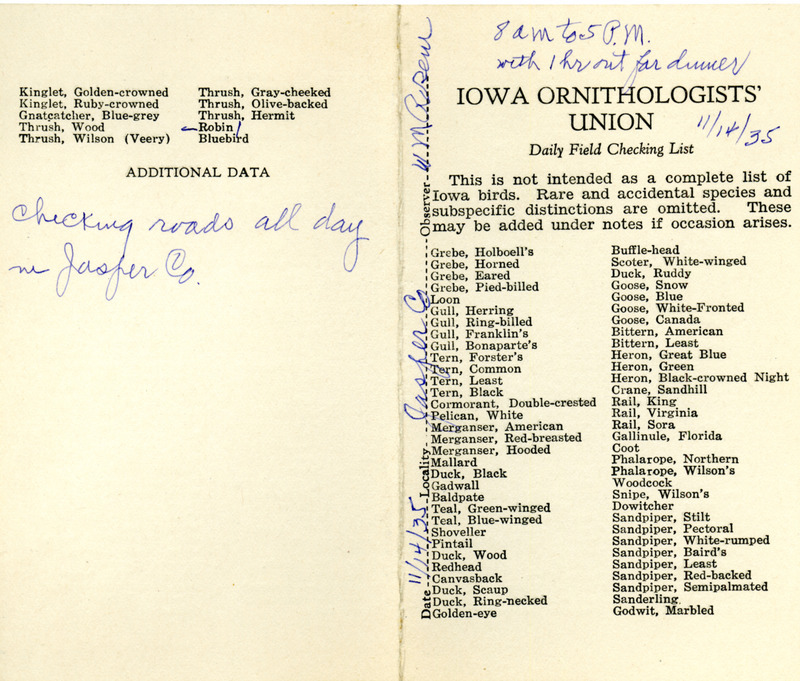 Kinglet, Golden-crowned
Kinglet, Ruby-crowned
Gnatcatcher, Blue-grey
Thrush, Wood
Thrush, Wilson (Veery)
Thrush, Gray-cheeked
Thrush, Olive-backed
Thrush, Hermit
Robin 1
Bluebird
ADDITIONAL DATA
checking roads all day
in Jasper Co.
Date 11/14/35 Locality Jasper Co Observer W M Rosene
8 am to 5 P.M.
with 1 hr out for dinner
IOWA ORNITHOLOGISTS'
UNION
11/14/35
Daily Field Checking List
This is not intended as a complete list of
Iowa birds. Rare and accidental species and
subspecific distinctions are omitted. These
may be added under notes if occasion arises.
Grebe, Holboell's
Grebe, Horned
Grebe, Eared
Grebe, Pied-billed
Loon
Gull, Herring
Gull, Ring-billed
Gull, Franklin's
Gull, Bonaparte's
Tern, Forster's
Tern, Common
Tern, Least
Tern, Black
Cormorant, Double-crested
Pelican, White
Merganser, American
Merganser, Red-breasted
Merganser, Hooded
Mallard
Duck, Black
Gadwall
Baldpate
Teal, Green-winged
Teal, Blue-winged
Shoveller
Pintail
Duck, Wood
Redhead
Canvasback
Duck, Scaup
Duck, Ring-necked
Golden-eye
Buffle-head
Scoter, White-winged
Duck, Ruddy
Goose, Snow
Goose, Blue
Goose, White-Fronted
Goose, Canada
Bittern, American
Bittern, Least
Heron, Great Blue
Heron, Green
Heron, Black-crowned Night
Crane, Sandhill
Rail, King
Rail, Virginia
Rail, Sora
Gallinule, Florida
Coot
Phalarope, Northern
Phalarope, Wilson's
Woodcock
Snipe, Wilson's
Dowitcher
Sandpiper, Stilt
Sandpiper, Pectoral
Sandpiper, White-rumped
Sandpiper, Baird's
Sandpiper, Least
Sandpiper, Red-backed
Sandpiper, Semipalmated
Sanderling
Godwit, Marbled